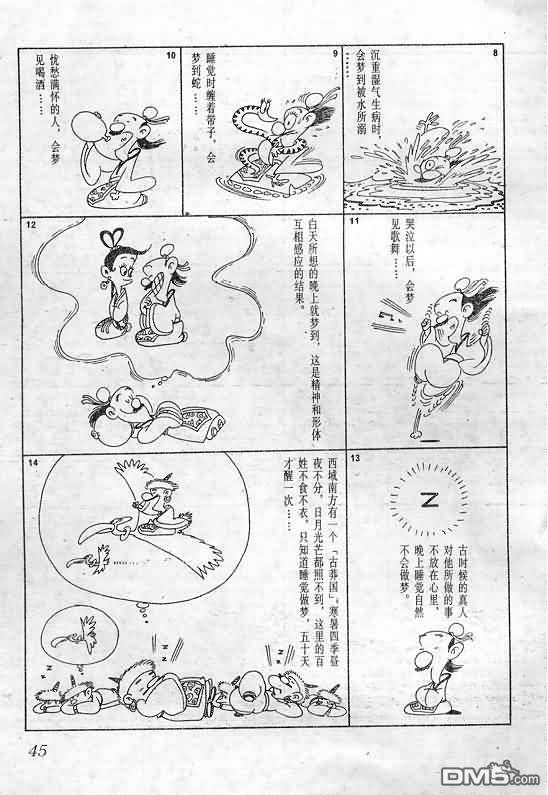 8
沉重湿气生病时，
会梦到被水所溺
……
9
睡觉时缠着带子，会
梦到蛇……
10
忧愁满怀的人，会梦
见喝酒……
11
哭泣以后，会梦
见歌舞……
12
白天所想的晚上就梦到，这是精神和形体
互相感应的结果。
13
Z
古时候的真人
对他所做的事
不放在心里，
晚上睡觉自然
不会做梦。
14
西域南方有一个「古莽国」。寒暑四季昼
夜不分。日月光芒都照不到，这里的百
姓不食不衣，只知道睡觉做梦，五十天
才醒一次……
z
z
z
z
45
DM5.com